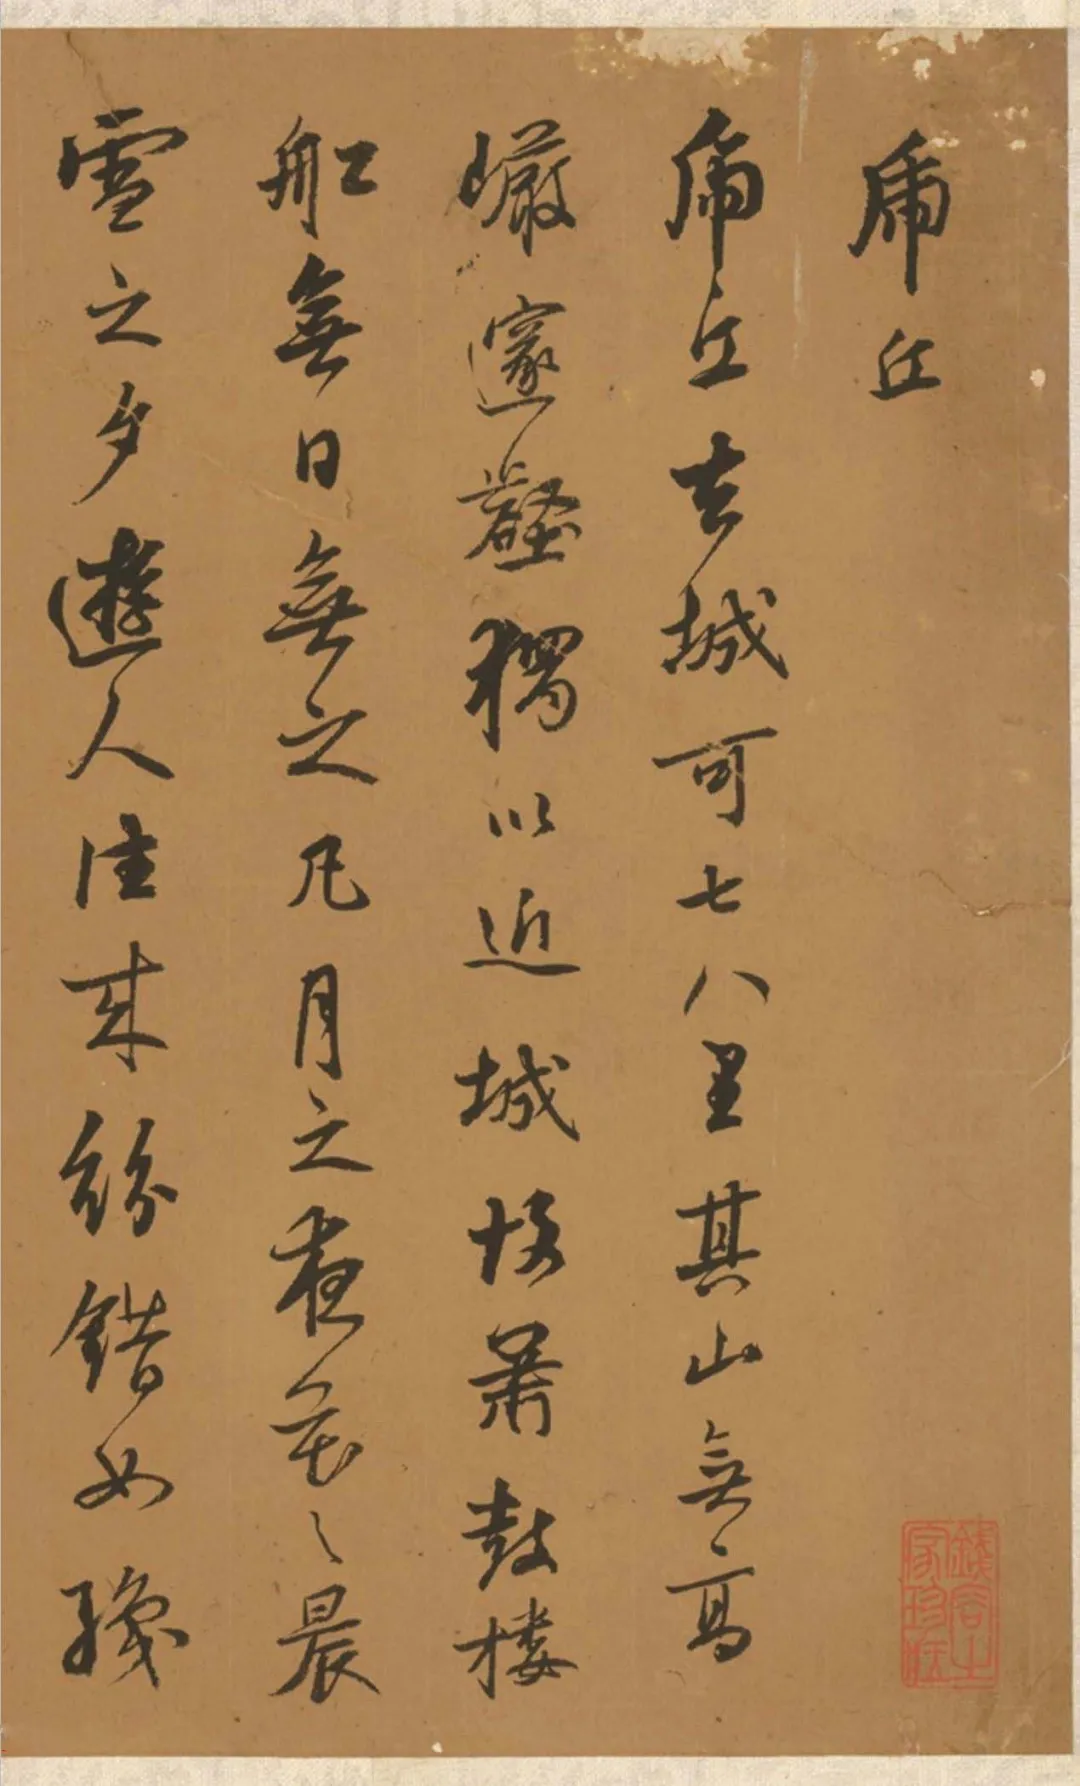 虎丘
虎丘去城可七八里其山無高
巗邃壑獨以近城故簫鼓樓
舡無日無之凡月之夜花之晨
雪之夕遊人往來紛錯如織